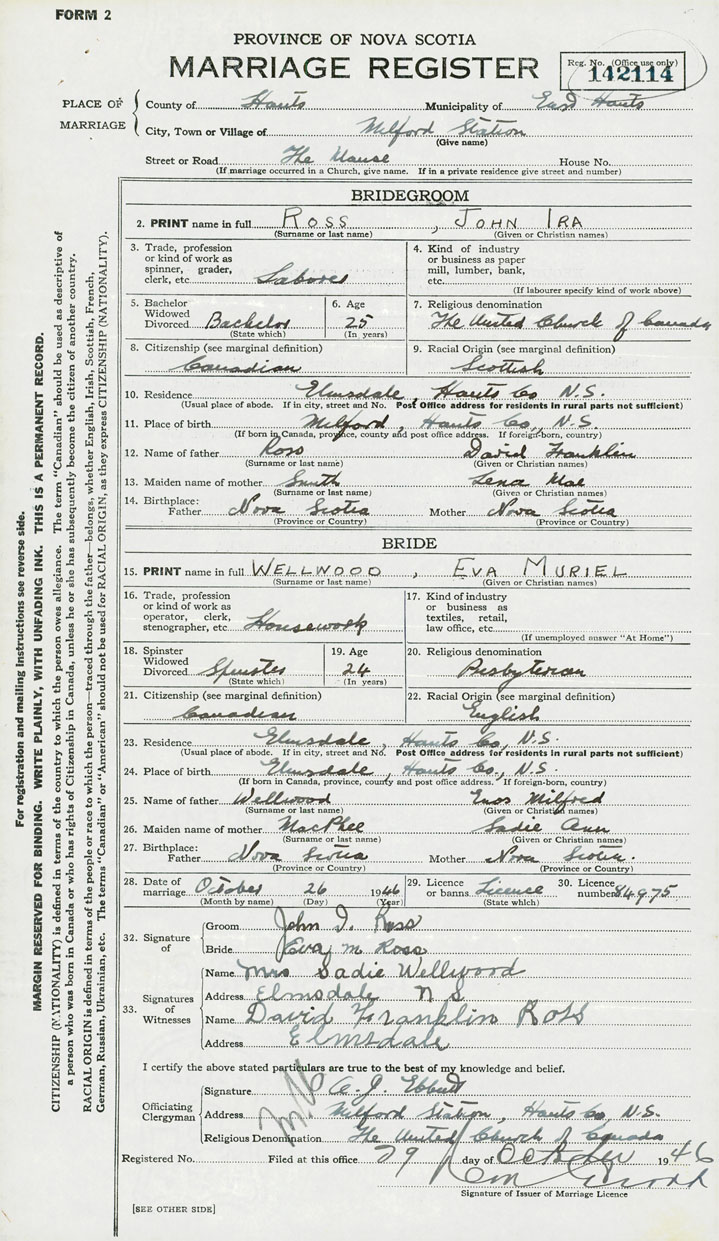 FORM 2
PROVINCE OF NOVA SCOTIA
MARRIAGE REGISTER
Reg. No. (Office use only)
142114
PLACE OF MARRIAGE
County of Hants Municipality of East Hants
City, Town or Village of Milford Station
(Give name)
Street or Road The Manse House No.
(If marriage occurred in a Church, give name. If in a private residence give street and number)
BRIDEGROOM
2. PRINT name in full ROSS, JOHN IRA
(Surname or last name) (Given or Christian names)
3. Trade, profession or kind of work as spinner, grader, clerk, etc. Laborer
4. Kind of industry or business as paper mill, lumber, bank, etc.
(If labourer specify kind of work above)
5. Bachelor Widowed Divorced Bachelor
(State which)
6. Age 25
(In years)
7. Religious denomination
The United Church of Canada
8. Citizenship (see marginal definition)
Canadian
9. Racial Origin (see marginal definition)
Scottish
10. Residence Elmsdale, Hants Co N.S.
(Usual place of abode. If in city, street and No. Post Office address for residents in rural parts not sufficient)
11. Place of birth Milford, Hants Co., N.S.
(If born in Canada, province, county and post office address. If foreign-born, country)
12. Name of father Ross David Franklin
(Surname or last name) (Given or Christian names)
13. Maiden name of mother Smith Lena Mae
(Surname or last name) (Given or Christian names)
14. Birthplace: Father Nova Scotia Mother Nova Scotia
(Province or Country) (Province or Country)
BRIDE
15. PRINT name in full WELLWOOD, EVA MURIEL
(Surname or last name) (Given or Christian names)
16. Trade, profession or kind of work as operator, clerk, stenographer, etc. Housework
17. Kind of industry or business as textiles, retail, law office, etc.
(If unemployed answer "At Home")
18. Spinster Widowed Divorced Spinster
(State which)
19. Age 24
(In years)
20. Religious denomination
Presbyterian
21. Citizenship (see marginal definition)
Canadian
22. Racial Origin (see marginal definition)
English
23. Residence Elmsdale, Hants Co, N.S.
(Usual place of abode. If in city, street and No. Post Office address for residents in rural parts not sufficient)
24. Place of birth Elmsdale, Hants Co., N.S.
(If born in Canada, province, county and post office address. If foreign-born, country)
25. Name of father Wellwood Enos Milfred
(Surname or last name) (Given or Christian names)
26. Maiden name of mother MacPhee Sadie Ann
(Surname or last name) (Given or Christian names)
27. Birthplace: Father Nova Scotia Mother Nova Scotia.
(Province or Country) (Province or Country)
28. Date of marriage October 26 1946
(Month by name) (Day) (Year)
29. Licence or banns Licence
(State which)
30. Licence number 84975
32. Signature of
Groom John I. Ross
Bride Eva M Ross
33. Signatures of Witnesses
Name Mrs Sadie Wellwood
Address Elmsdale N S
Name David Franklin Ross
Address Elmsdale
I certify the above stated particulars are true to the best of my knowledge and belief.
Officiating Clergyman
Signature A. J. Ebbutt
Address Milford Station, Hants Co, N.S.
Religious Denomination The United Church of Canada
Registered No. Filed at this office 29 day of October 1946
Signature of Issuer of Marriage Licence
[SEE OTHER SIDE]
For registration and mailing instructions see reverse side.
MARGIN RESERVED FOR BINDING. WRITE PLAINLY, WITH UNFADING INK. THIS IS A PERMANENT RECORD.
CITIZENSHIP (NATIONALITY) is defined in terms of the country to which the person owes allegiance. The term "Canadian" should be used as descriptive of
a person who was born in Canada or who has rights of Citizenship in Canada, unless he or she has subsequently become the citizen of another country.
RACIAL ORIGIN is defined in terms of the people or race to which the person—traced through the father—belongs, whether English, Irish, Scottish, French,
German, Russian, Ukrainian, etc. The terms "Canadian" or "American" should not be used for RACIAL ORIGIN, as they express CITIZENSHIP (NATIONALITY).